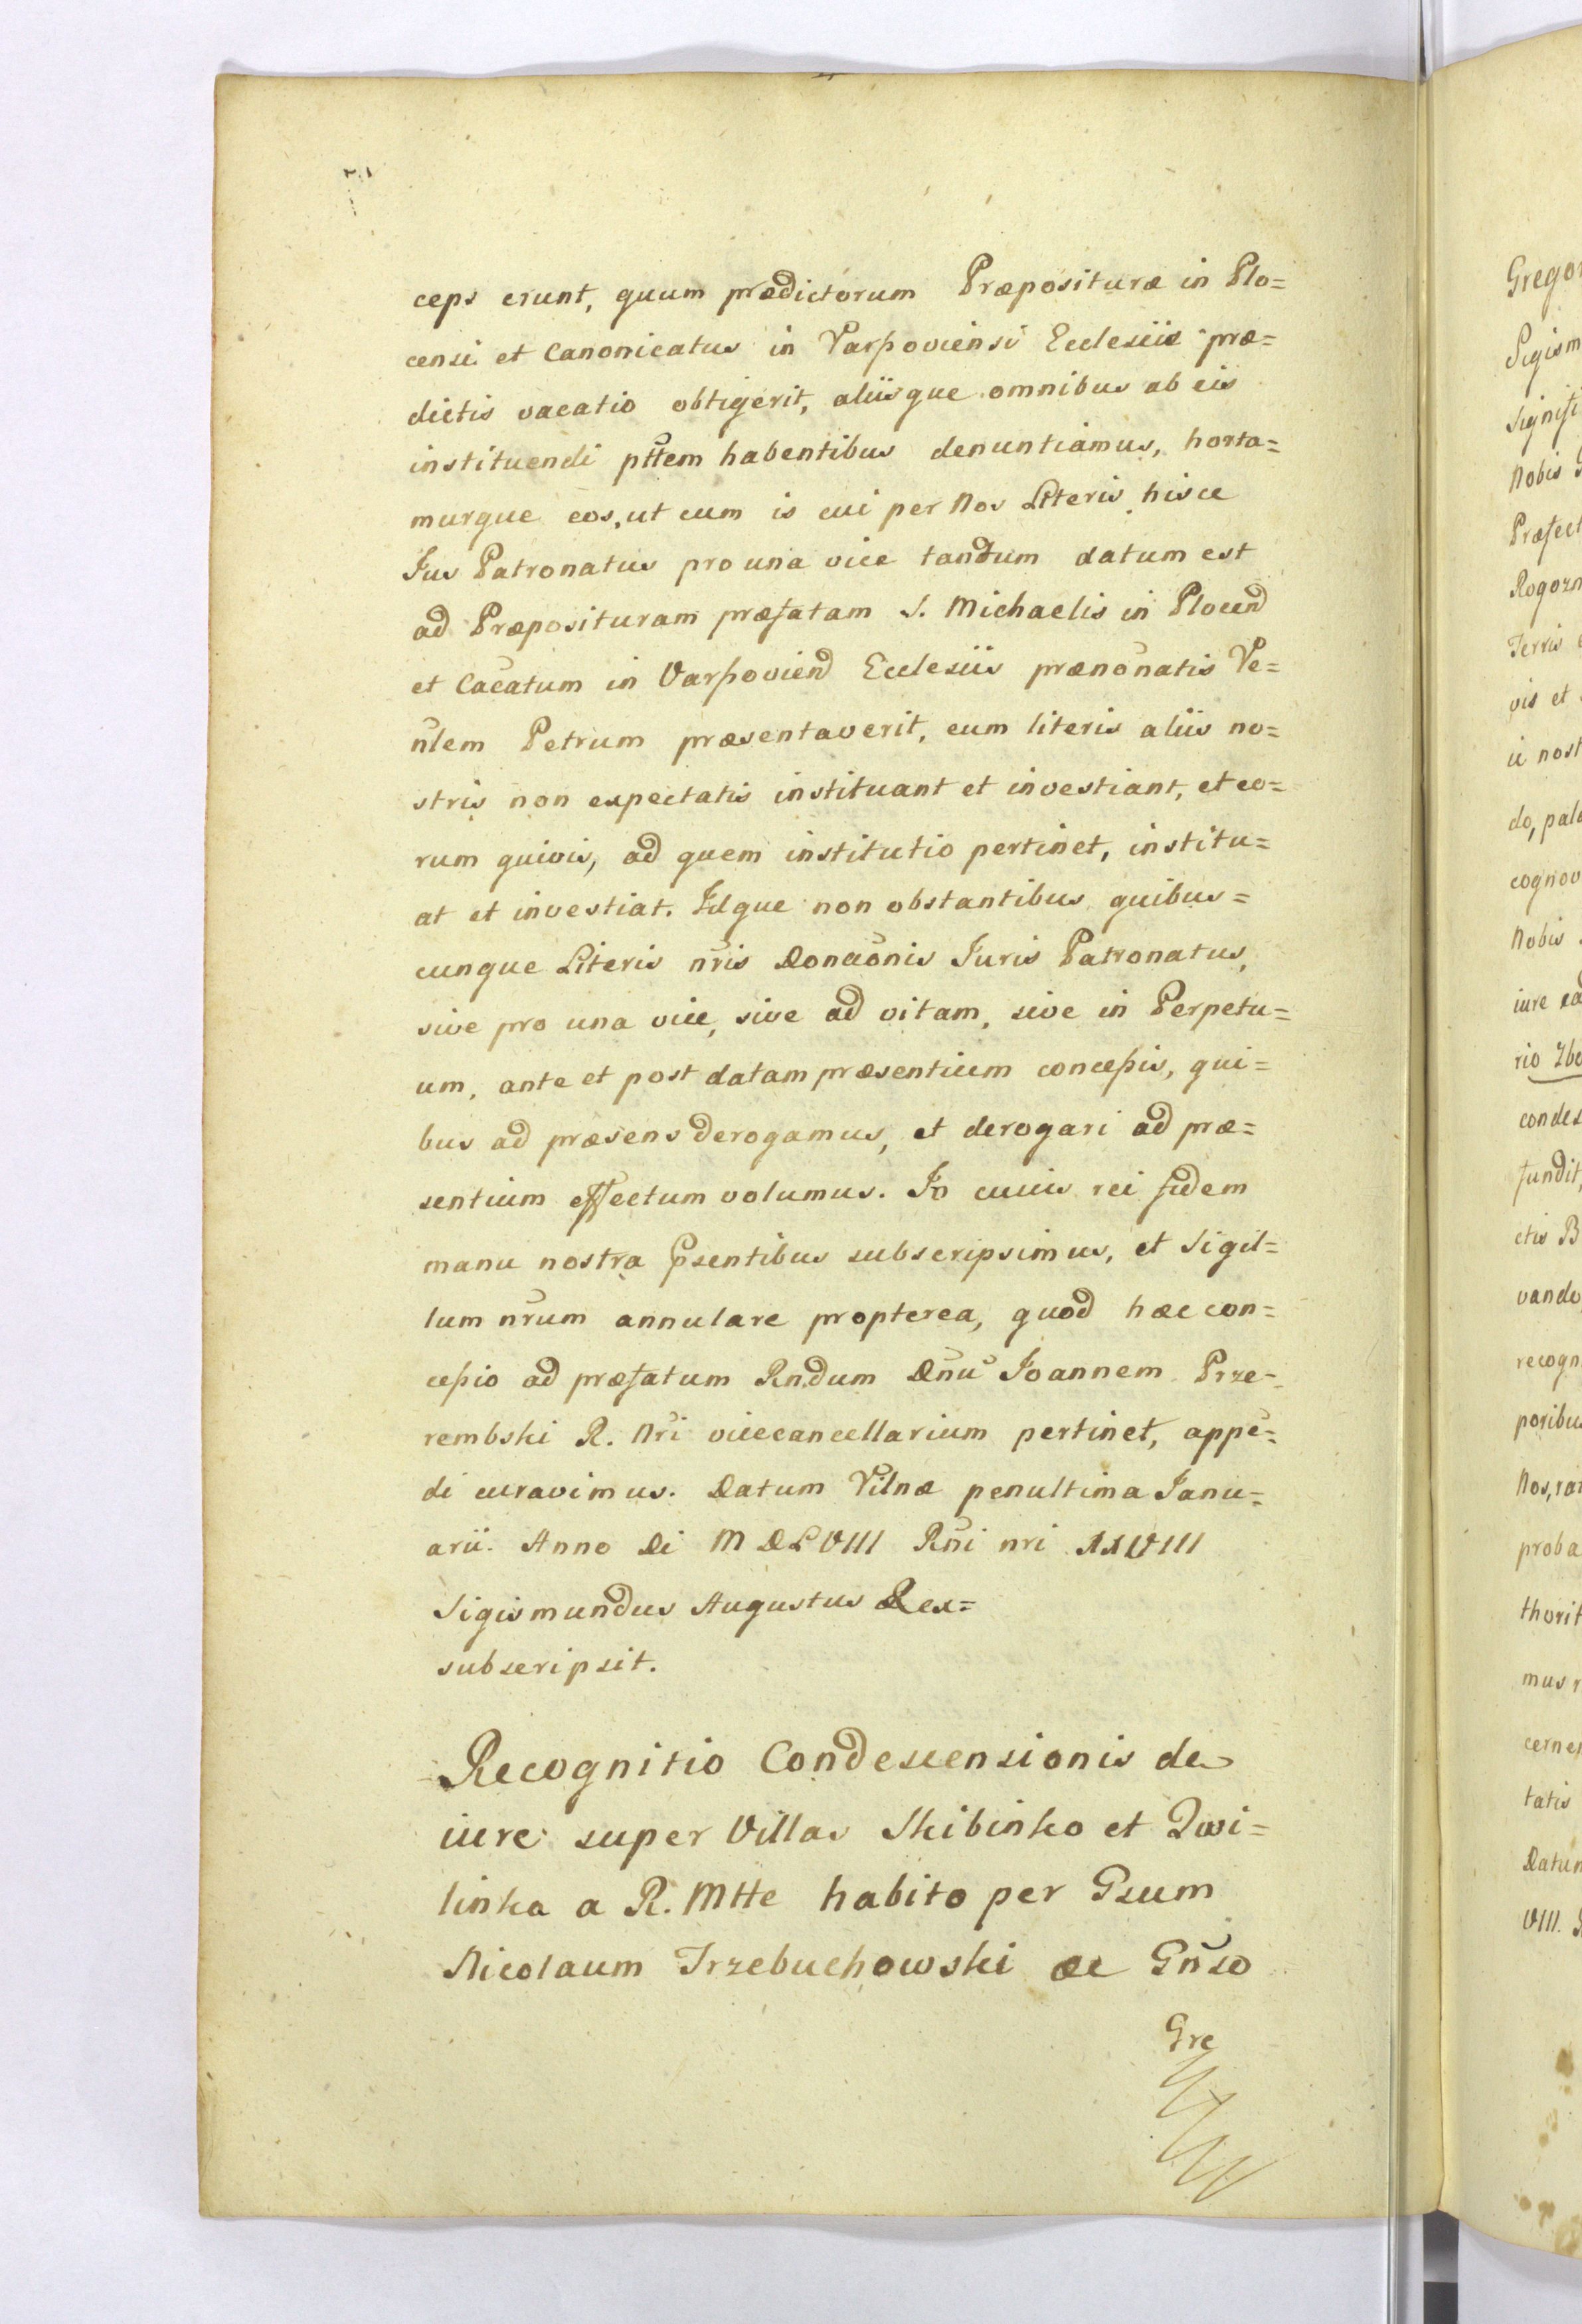 ceps erunt, quum prædictorum Præpositura in Plo=
censi et Canonicatus in Varßoviensi Eccleseiis præ=
dictis vacatio obtigerit, aliisque omnibus ab eis
instituendi pttem habentibus denuntiamus, horta=
murque eos, ut cum is cui per Nos Literis hisce
Jus Patronatus pro una vice tandum datum est
ad Præposituram præfatam S. Michaelis in Plocen
et Cacatum in Varßovien Ecclesiis prænonatis Ve=
nlem Petrum præsentaverit, eum literis aliis no=
stris non expectatis instituant et investiant, et eo=
rum quivis, ad quem institutio pertinet, institu=
at et investiat. Idque non obstantibus quibus=
cunque Literis nris Donaonis Juris Patronatus,
sive pro una vice, sive ad vitam, sive in Perpetu=
um, ante et post datam præsentium conceßis, qui=
bus ad præsens derogamus, et derogari ad præ=
sentium effectum volumus. In cuius rei fidem
manu nostra Psentibus subscripsimus, et Sigil=
lum nrum annulare propterea, quod hæc con=
ceßio ad præfatum Rndum Dnu Joannem Prze=
rembski R. Nri vicecancellarium pertinet, appe=
di curavimus. Datum Vilnæ penultima Janu=
arii. Anno Di MDLVIII Rni nri XXVIII
Sigismundus Augustus Rex=
subscripsit.
Recognitio Condescensionis de
iure super Villas Skibinko et Zwi=
linka a R. Mtte habito per Gsum
Nicolaum Trzebuchowski ac Gnso
Gre
Gregor
Sigism
Signifi
Nobis
Præfect
Rogozn
Terris
vis et
ii nost
do, pala
cognov
Nobis
iure ea
rio Zbo
condes
fundit,
ctis B
vando
recogn
poribu
Nos, rat
proba
thorit
mus
cernen
tatis
Datum
VIII.